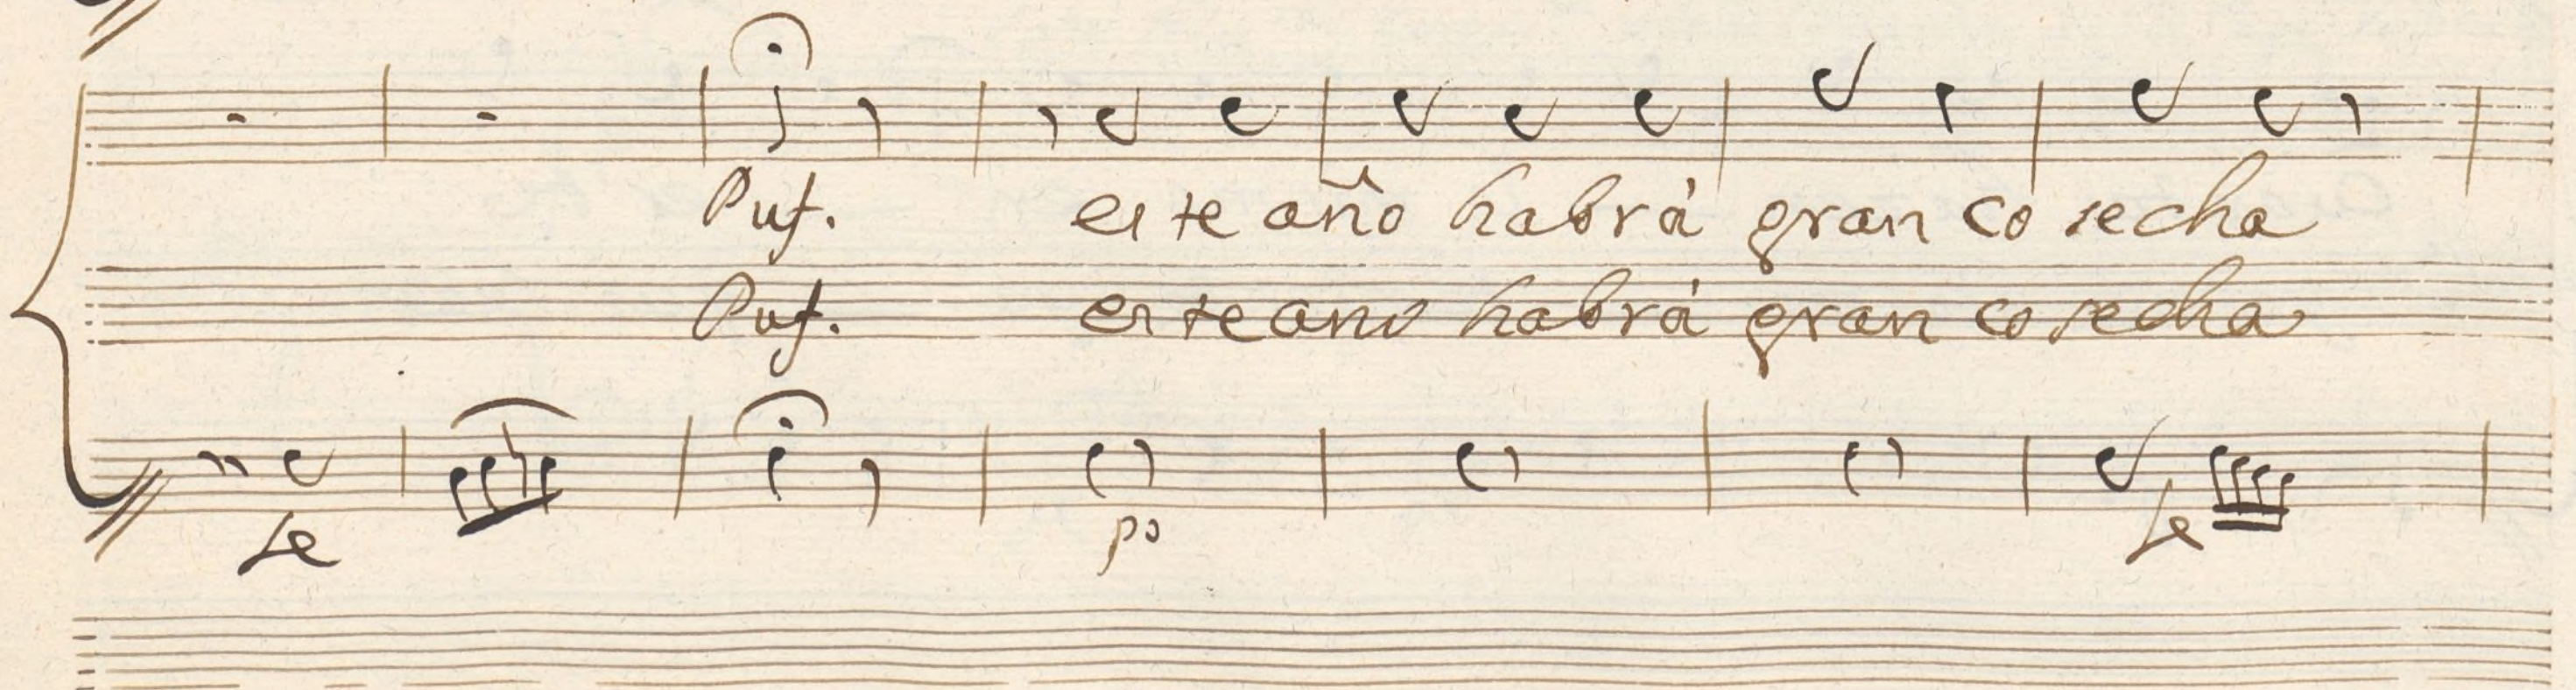 Puf. es te año habrá gran co secha
Puf. es te ano habrá gran co secha
fe po fe